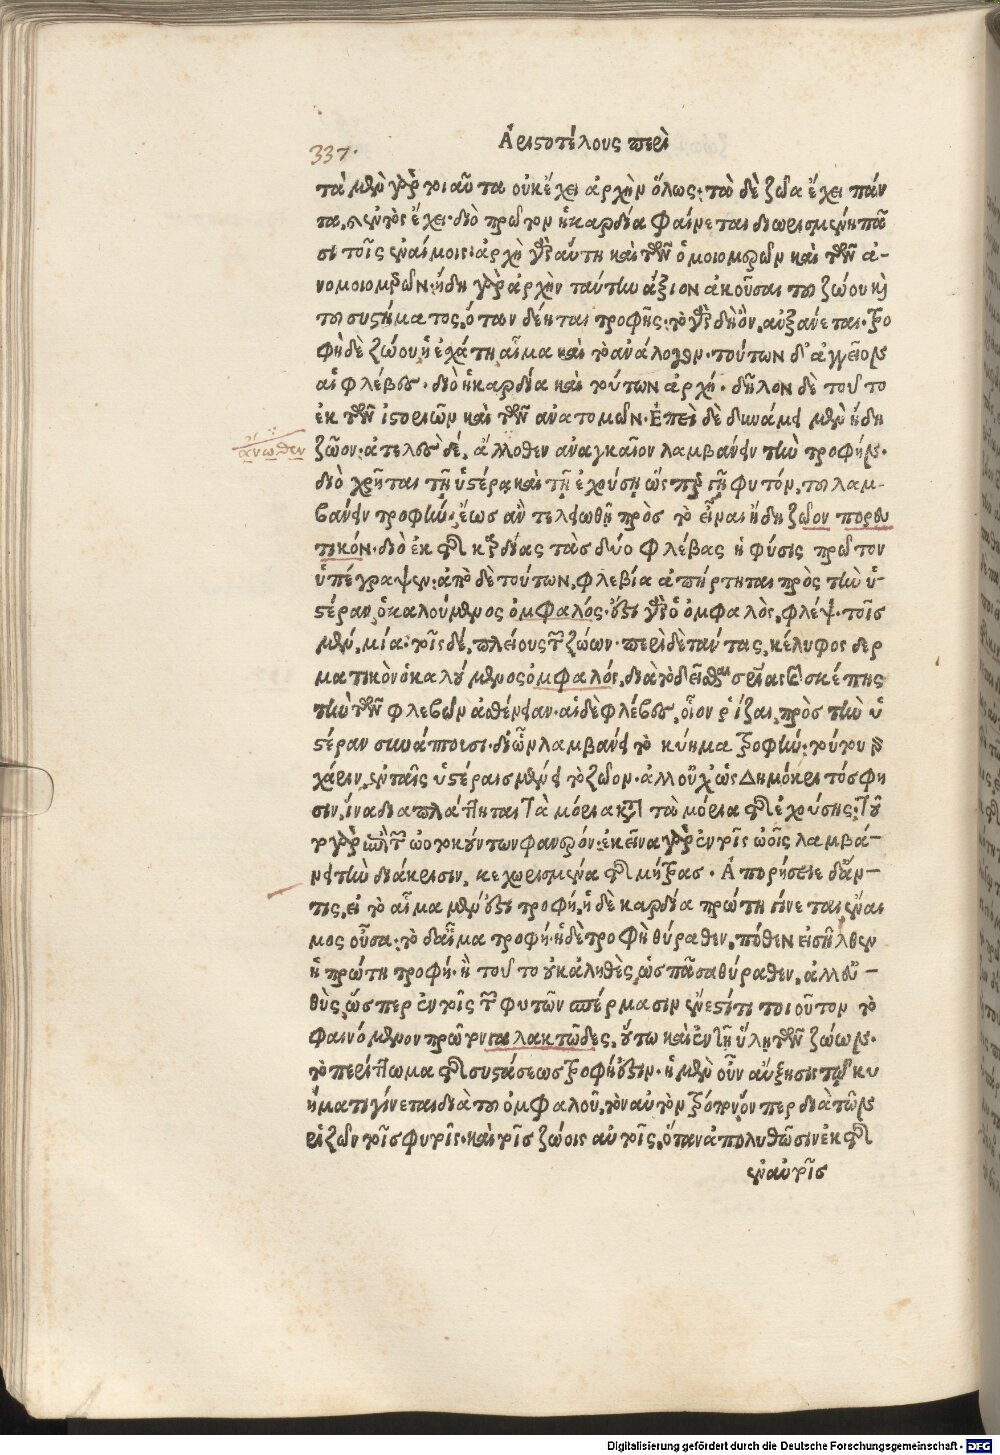 Ἀριστοτέλους περὶ
337.
τὰ μὲν γὰρ τοιαῦτα οὐκ ἔχει ἀρχὴν ὅλως· τὰ δὲ ζῶα ἔχει πάν
τα, κ ἐντὸς ἔχει· διὸ πρῶτον ἡ καρδία φαίνεται διωρισμένη πᾶ
σι τοῖς ἐναίμοις· ἀρχὴ γὰρ αὕτη καὶ τῶν ὁμοιομερῶν καὶ τῶν ἀ-
νομοιομερῶν· ἤδη γὰρ ἀρχὴν ταύτην ἄξιον ἀκοῦσαι τοῦ ζώου κὴ
τοῦ συστήματος, ὅταν δέηται τροφῆς· τὸ γὰρ δὴ ὂν, αὐξάνεται. τρο
φὴ δὲ ζώου, ἡ ἐχάτη αἷμα καὶ τὸ ἀνάλογον· τούτων δ' ἀγγεῖον
αἱ φλέβες· διὸ ἡ καρδία καὶ τούτων ἀρχή. δῆλον δὲ τοῦτο
ἐκ τῶν ἱστοριῶν καὶ τῶν ἀνατομῶν. Ἐπεὶ δὲ δυνάμει μὲν ἤδη
ἄνωθεν
ζῶον· ἀτελὲς δέ, ἄλλοθεν ἀναγκαῖον λαμβάνειν τὴν τροφήν.
διὸ χρῆται τῇ ὑστέρᾳ, καὶ τῇ ἐχούσῃ ὥσπερ γῇ φυτόν, τοῦ λαμ-
βάνειν τροφήν, ἕως ἂν τελεωθῇ πρὸς τὸ εἶναι ἤδη ζῶον πορευ
τικόν. διὸ ἐκ τῆς καρδίας τὰς δύο φλέβας ἡ φύσις πρῶτον
ὑπέγραψεν· ἀπὸ δὲ τούτων, φλεβία ἀπήρτηται πρὸς τὴν ὑ-
στέραν, ὁ καλούμενος ὀμφαλός. ἔστι γὰρ ὁ ὀμφαλὸς, φλέψ· τοῖς
μὲν, μία· τοῖς δέ, πλείους τῶν ζώων. περὶ δὲ ταύτας, κέλυφος δερ
ματικὸν ὁ καλούμενος ὀμφαλός, διὰ τὸ δεῖσθαι σωτηρίας καὶ σκέπης
τὴν τῶν φλεβῶν ἀσθένειαν. αἱ δὲ φλέβες, οἷον ῥίζαι, πρὸς τὴν ὑ
στέραν συνάπτουσι· δι' ὧν λαμβάνει τὸ κύημα τροφήν· τούτου γὰρ
χάριν, ἐν ταῖς ὑστέραις μένει τὸ ζῶον. ἀλλ' οὐχ ὡς Δημόκριτός φη
σιν, ἵνα διαπλάττηται τὰ μόρια κατὰ τὰ μόρια τῆς ἐχούσης. τοῦ
το γὰρ ἐπὶ τῶν ὠοτοκούντων φανερόν· ἐκεῖνα γὰρ ἐν τοῖς ὠοῖς λαμβά-
νει τὴν διάκρισιν, κεχωρισμένα τῆς μήτρας. Ἀπορήσειε δ' ἄν-
τις, εἰ τὸ αἷμα μὲν ἔστι τροφή, ἡ δὲ καρδία πρώτη γίνεται ἔναι
μος οὖσα· τὸ δ' αἷμα τροφή· ἡ δὲ τροφὴ θύραθεν, πόθεν εἰσῆλθεν
ἡ πρώτη τροφή. ἢ τοῦτο οὐκ ἀληθὲς, ὡς πᾶσα θύραθεν, ἀλλ' εὐ-
θὺς, ὥσπερ ἐν τοῖς τῶν φυτῶν σπέρμασιν ἔνεστί τι τοιοῦτον τὸ
φαινόμενον πρῶτον γαλακτῶδες, οὕτω καὶ ἐν τῇ ὕλῃ τῶν ζώων.
τὸ περίττωμα τῆς συστάσεως τροφή ἐστιν. ἡ μὲν οὖν αὔξησις τῷ κυ
ήματι γίνεται διὰ τοῦ ὀμφαλοῦ, τὸν αὐτὸν τρόπον ὅνπερ διὰ τῶν
ῥιζῶν τοῖς φυτοῖς. καὶ τοῖς ζώοις αὐτοῖς, ὅταν ἀπολυθῶσιν ἐκ τῆς
ἐν αὐτοῖς
Digitalisierung gefördert durch die Deutsche Forschungsgemeinschaft - DFG